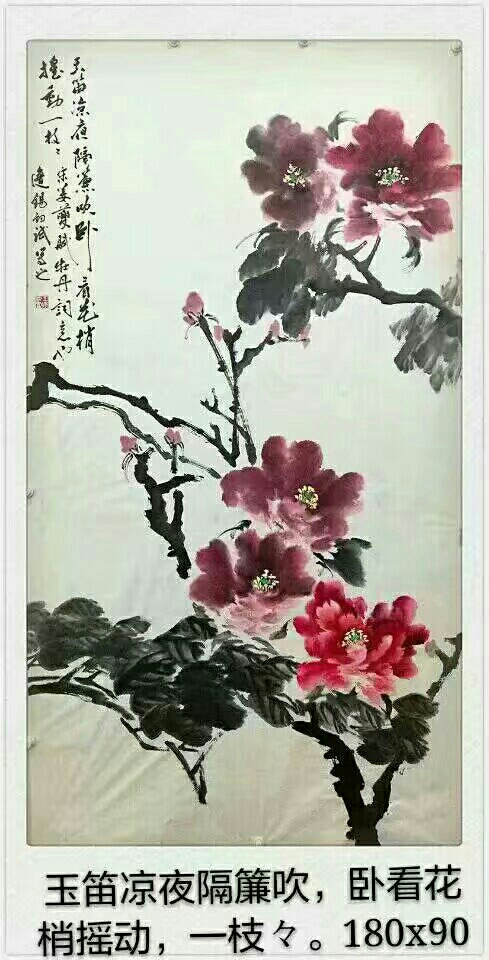 玉笛凉夜隔簾吹卧看花梢
摇動一枝々宋姜夔賦牡丹詞意也
玉笛凉夜隔簾吹，卧看花
梢摇动，一枝々。180x90